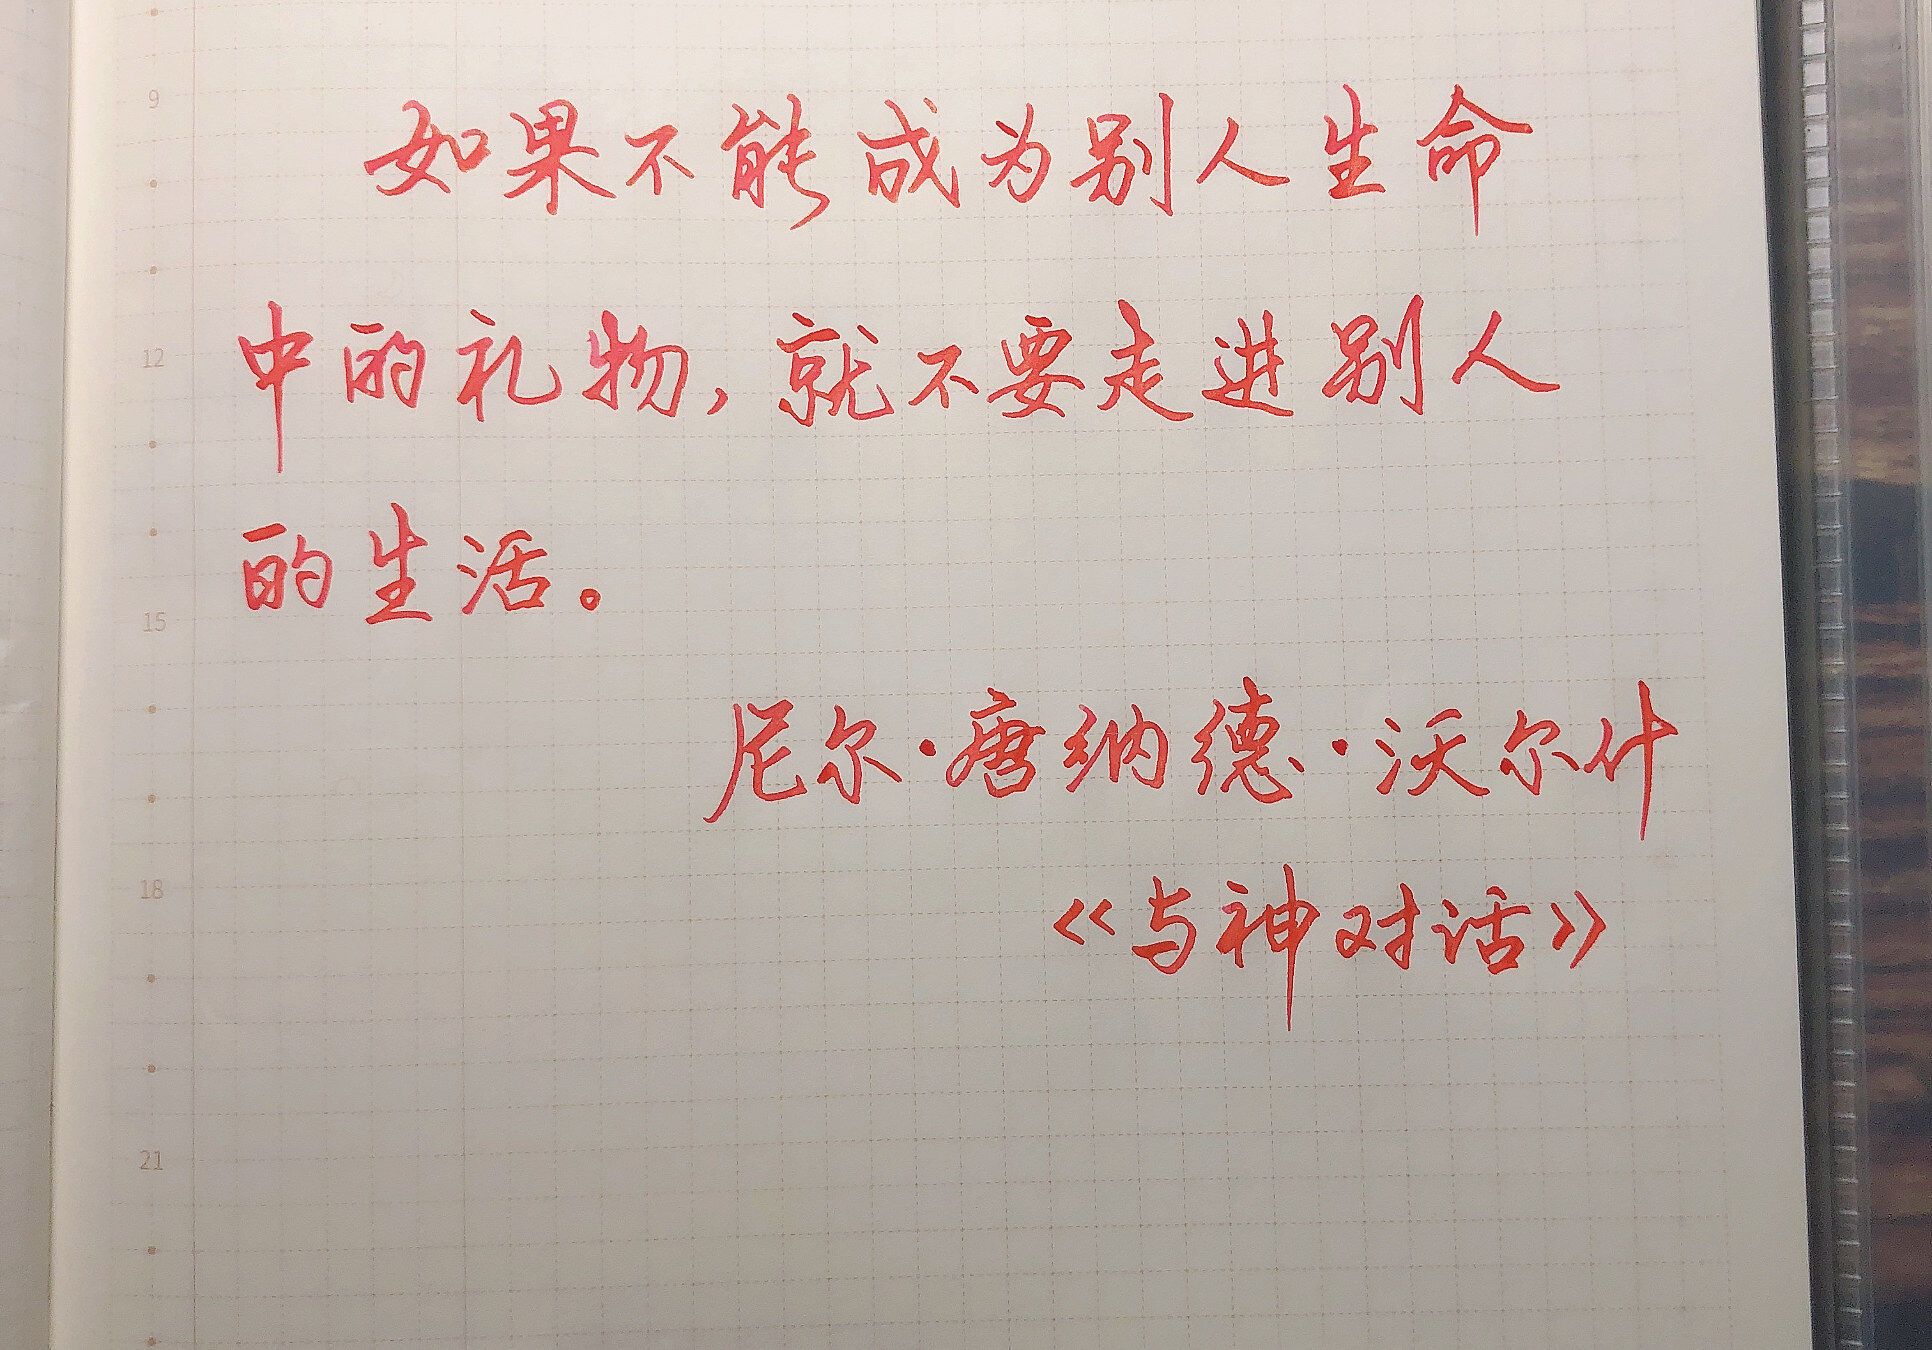 9
如果不能成为别人生命
中的礼物，就不要走进别人
12
的生活。
15
尼尔·唐纳德·沃尔什
18
《与神对话》
21